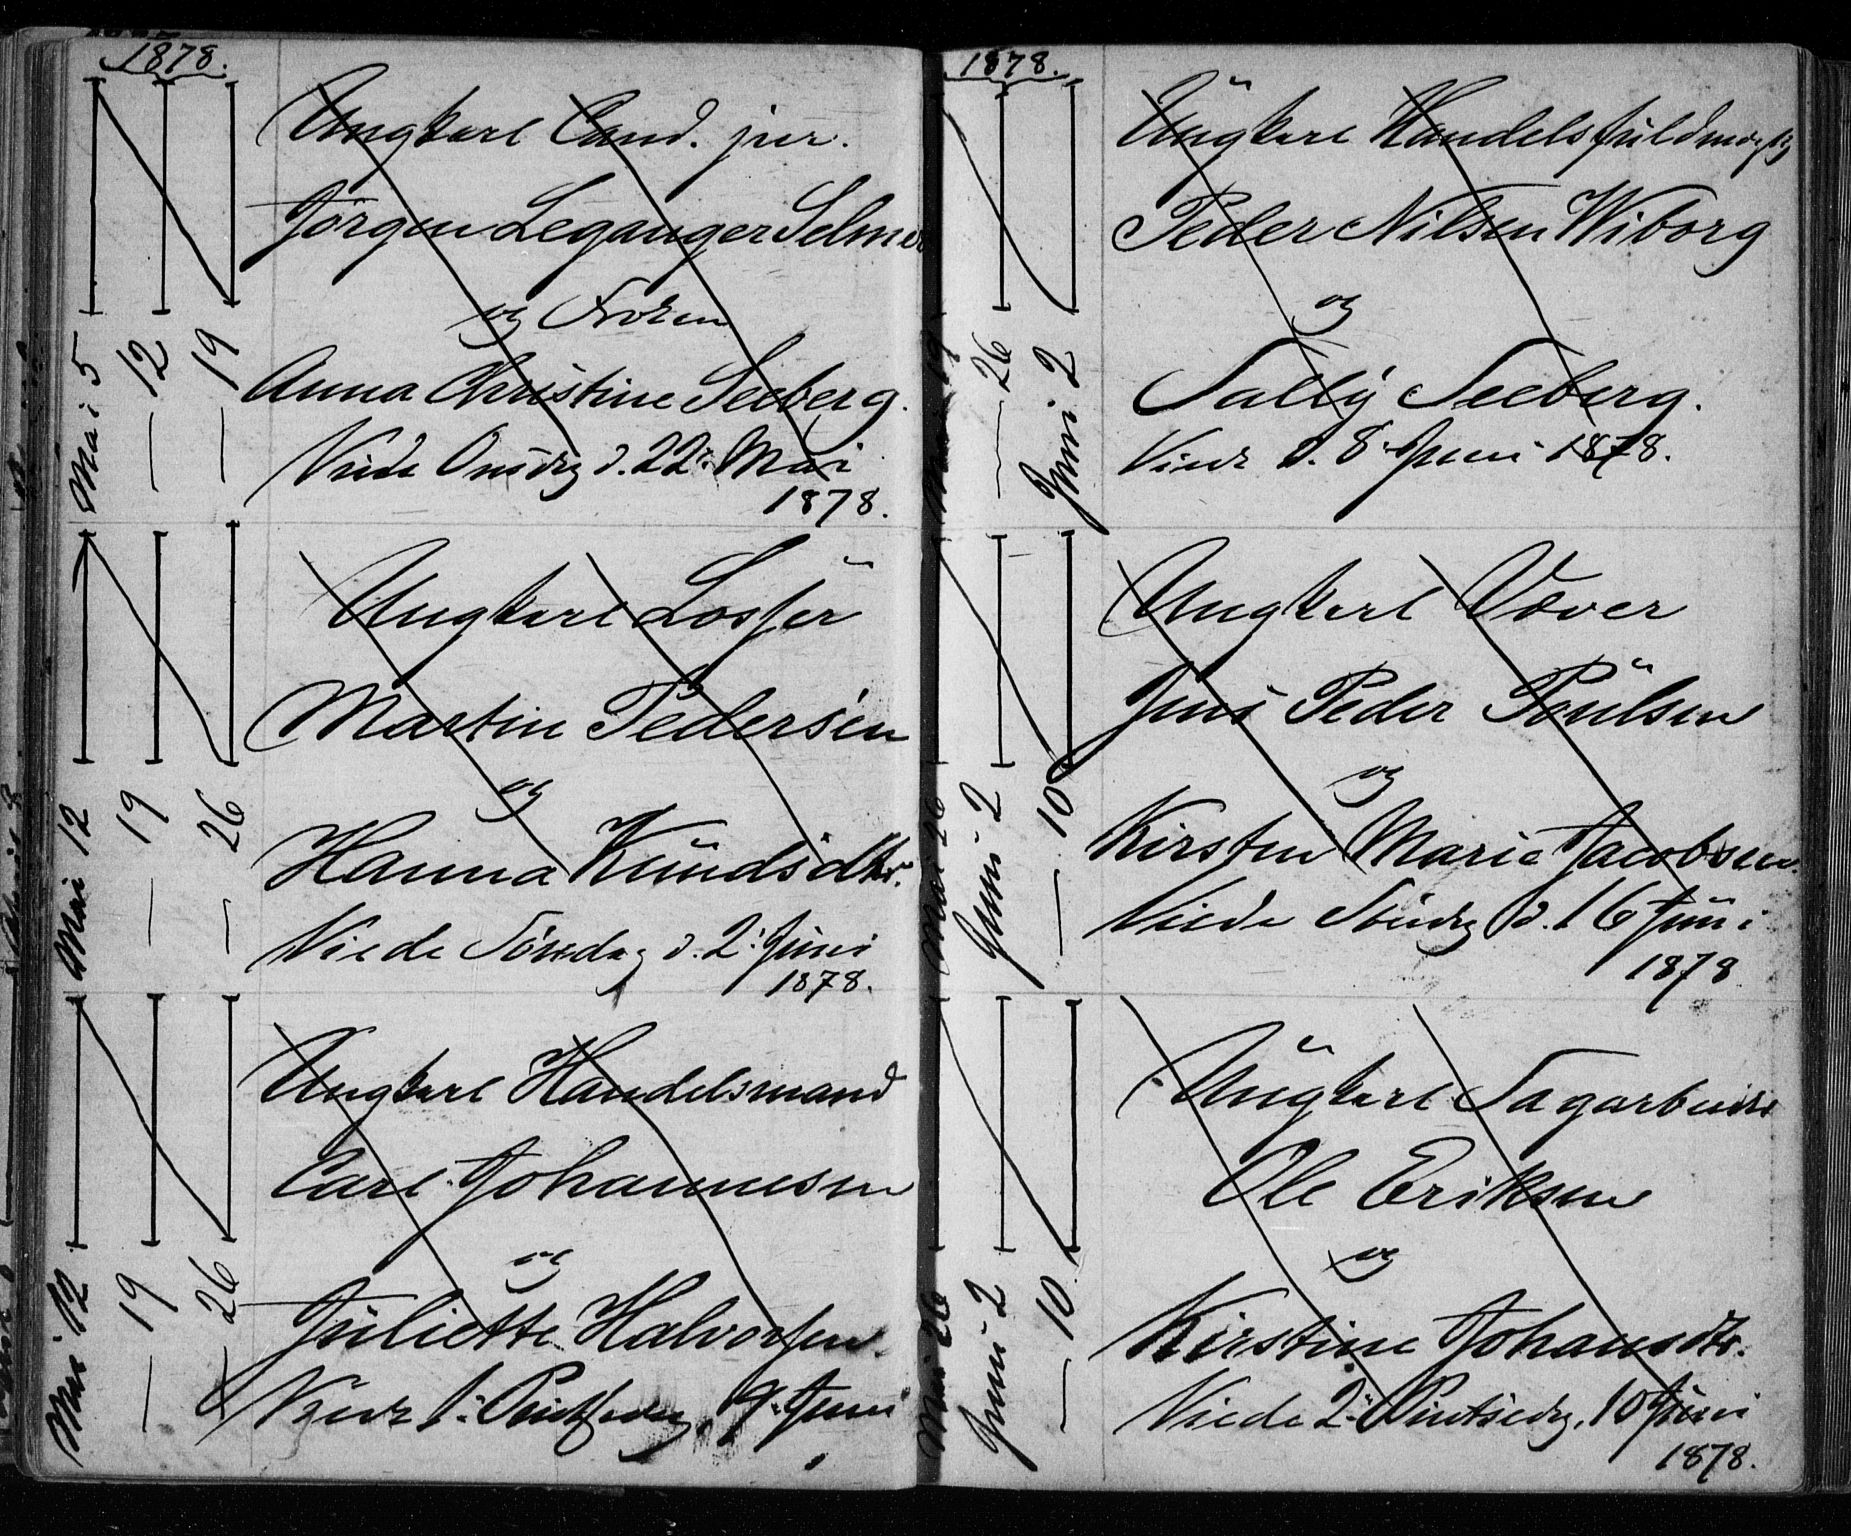 1878.
Mai 5
— 12
— 19
Ungkarl Cand. jur.
Jörgen Leganger Selmer
og Fröken
Anna Christine Seeberg.
Viede Onsdag d. 22: Mai
1878.
Mai 12
— 19
— 26
Ungkarl Losser
Martin Pedersen
og
Hanna Knudsdtr.
Viede Söndag d. 2: Juni
1878.
Mai 12
— 19
— 26
Ungkarl Handelsmand
Carl Johannesen
og
Juliette Halvorsen.
Viede 1: Pintsedag, 9: Juni
1878.
Mai 19
— 26
Juni 2
Ungkarl Handelsfuldmægtig
Peder Nilsen Wiborg
og
Sally Seeberg.
Viede d. 8: Juni 1878.
Mai 26
Juni 2
— 10
Ungkarl Væver
Jens Peder Poulsen
og
Kirsten Marie Jacobsen.
Viede Söndag d. 16 Juni
1878
Mai 26
Juni 2
— 10
Ungkarl Sagarbeider
Ole Eriksen
og
Kirstine Johansdtr.
Viede 2: Pintsedag, 10 Juni
1878.